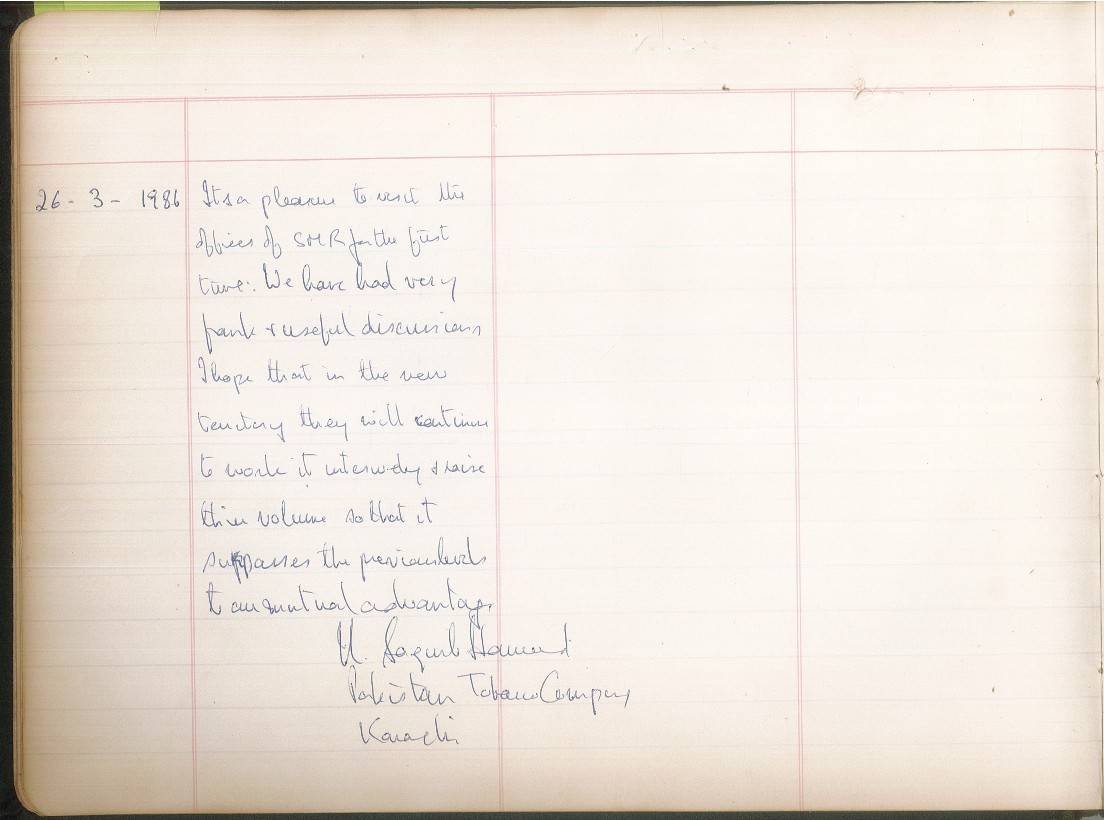 26-3-1986 Its a pleasure to visit the
offices of SMR for the first
time. We have had very
frank & useful discussions
I hope that in the new
territory they will continue
to work it intensively & raise
their volume so that it
surpasses the previous levels
to our mutual advantage
Hameed
Pakistan Tobacco Company
Karachi